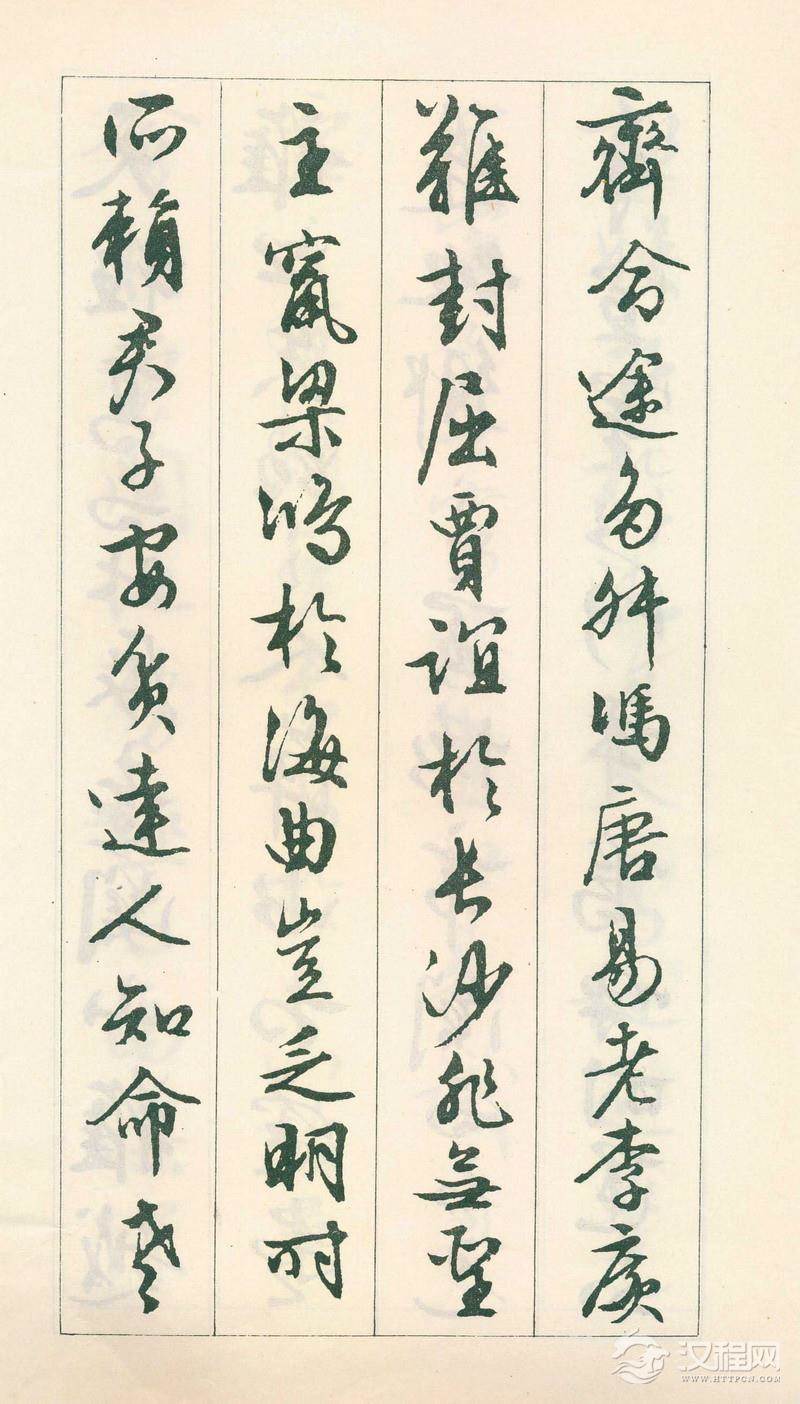 齊命途多舛馮唐易老李廣
難封屈賈誼於長沙非無聖
主竄梁鴻於海曲豈乏明時
所賴君子安貧達人知命老
汉程网
WWW.HTTPCN.COM